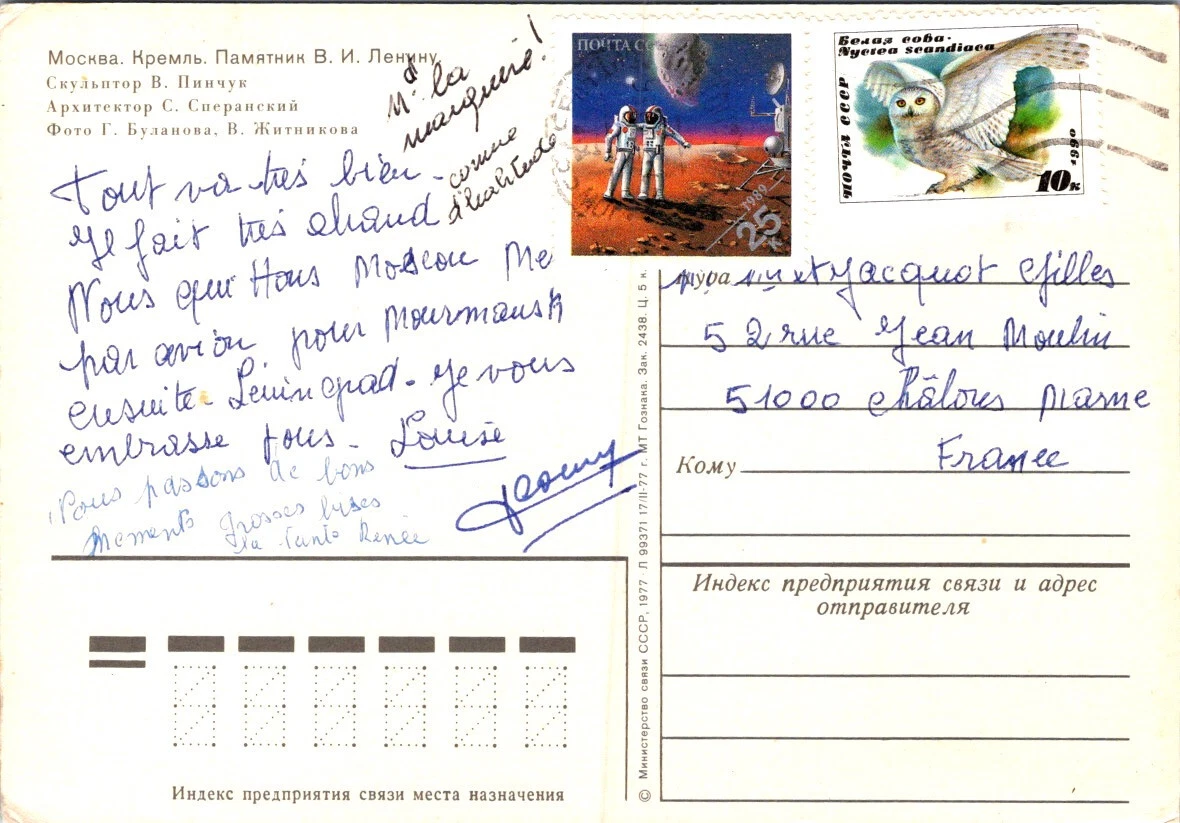 Москва. Кремль. Памятник В. И. Ленину
Скульптор В. Пинчук
Архитектор С. Сперанский
Фото Г. Буланова, В. Житникова
Tout va très bien.
Il fait très chaud
Nous quittons Moscou Me
par avion pour Mourmansk
ensuite. Léningrad. Je vous
embrasse tous. Louise
Nous passons de bons
moments grosses bises
ta Tante Renée
la
comme
d'habitude
ПОЧТА СС
1989
25
к
Белая сова.
Nyctea scandiaca
ПОЧТА СССР
1990
10к
et Jacquot Gilles
52 rue Jean Moulin
51000 Châlons Marne
Кому France
Индекс предприятия связи и адрес
отправителя
Индекс предприятия связи места назначения
© Министерство связи СССР, 1977. Л 99371 17/II-77 г. МТ Гознака. Зак. 2438. Ц. 5 к.